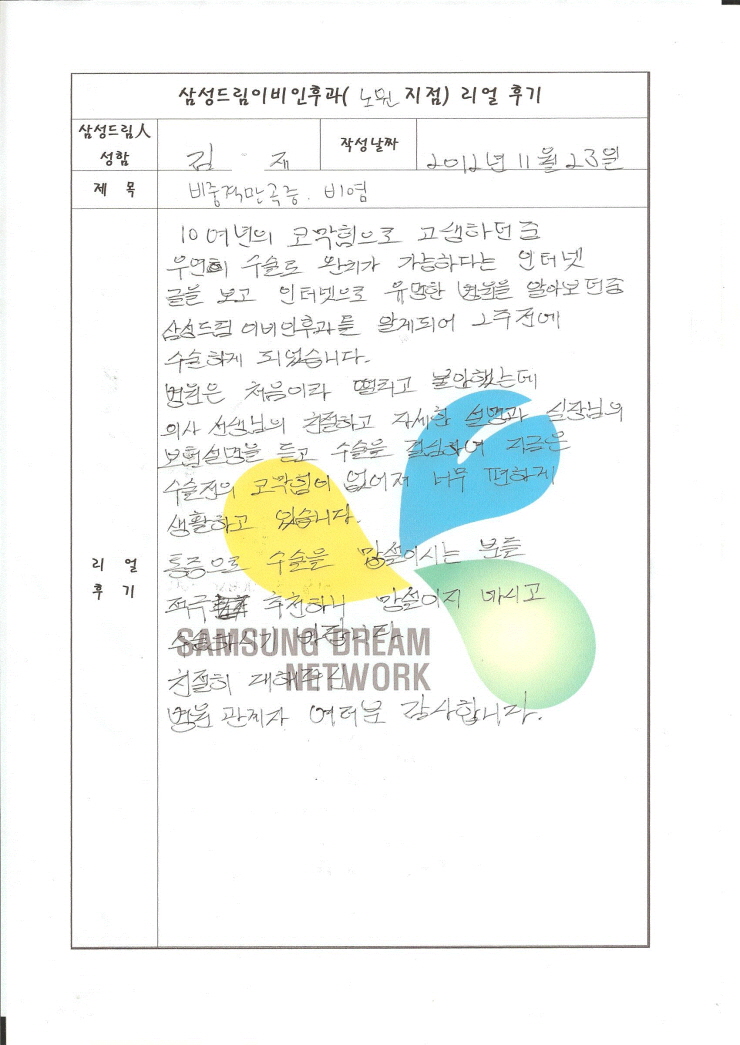 삼성드림이비인후과( 노원 지점) 리얼 후기
삼성드림人
성함
김 재
작성날짜
2012년 11월 23일
제 목
비중격만곡증. 비염
10여년의 코막힘으로 고생하던중
우연히 수술로 완치가 가능하다는 인터넷
글을 보고 인터넷으로 유명한 병원을 알아보던중
삼성드림 이비인후과를 알게되어 2주전에
수술하게 되었습니다.
병원은 처음이라 떨리고 불안했는데
의사 선생님의 친절하고 자세한 설명과 실장님의
보험설명을 듣고 수술을 결심하여 지금은
수술전의 코막힘이 없어져 너무 편하게
생활하고 있습니다.
통증으로 수술을 망설이시는 분들
적극 추천하니 망설이지 마시고
수술하시기 바랍니다
친절히 대해주신
병원 관계자 여러분 감사합니다.
리 얼
후 기
SAMSUNG DREAM
NETWORK